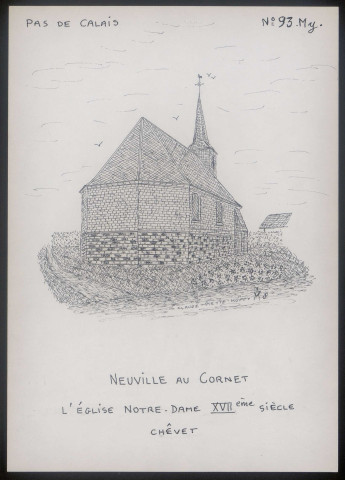 PAS DE CALAIS
N° 93.My.
NEUVILLE AU CORNET
L'ÉGLISE NOTRE-DAME XVIIème SIÈCLE
CHÊVET